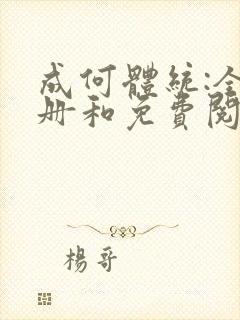 成何體統:全
册和免費閱
楊哥